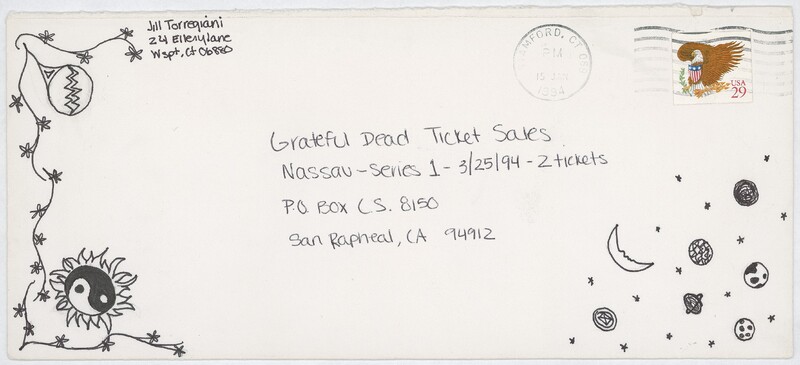 Jill Torregiani
24 Ellery lane
Wspt, Ct 06880
AMFORD, CT
PM
1994
USA
29
Grateful Dead Ticket Sales
Nassau - Series 1 - 3/25/94 - 2 tickets
P.O. Box C.S. 8150
San Rapheal, CA 94912